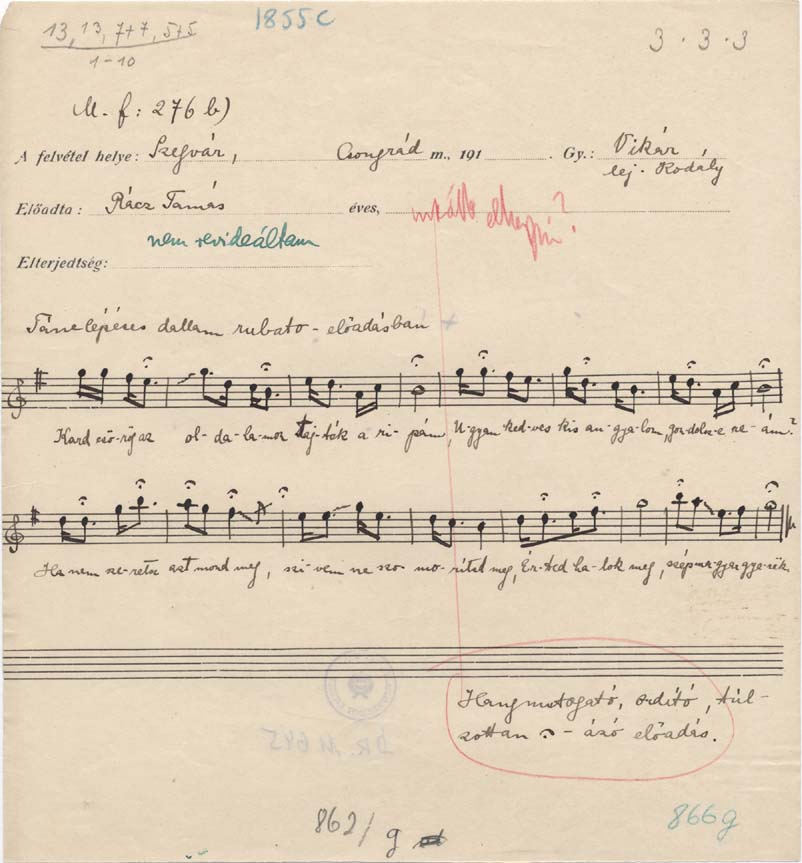 13, 13, 7+7, 5+5
1-10
1855c
3 . 3 . 3
M. f: 276 b)
A felvétel helye: Szegvár, Csongrád m., 191 . Gy.: Vikár
lej. Kodály
Előadta: Rácz Tamás éves,
nem revideáltam
Elterjedtség:
Tánclépéses dallam rubato-előadásban
Kard csö-rög az ol-da-la-mon taj-ték a ri-pám, U-gyan ked-ves kis an-gya-lom, gon-dolsz-e re-ám?
Ha nem sze-retsz azt mond meg, szi-vem ne szo-mo-rítsd meg, Ér-ted ha-lok meg, szép ma-gyar gye-rek
Hangmutogató, ordító, túl-
zottan - ázó előadás.
DR. M 645
862/g
866g